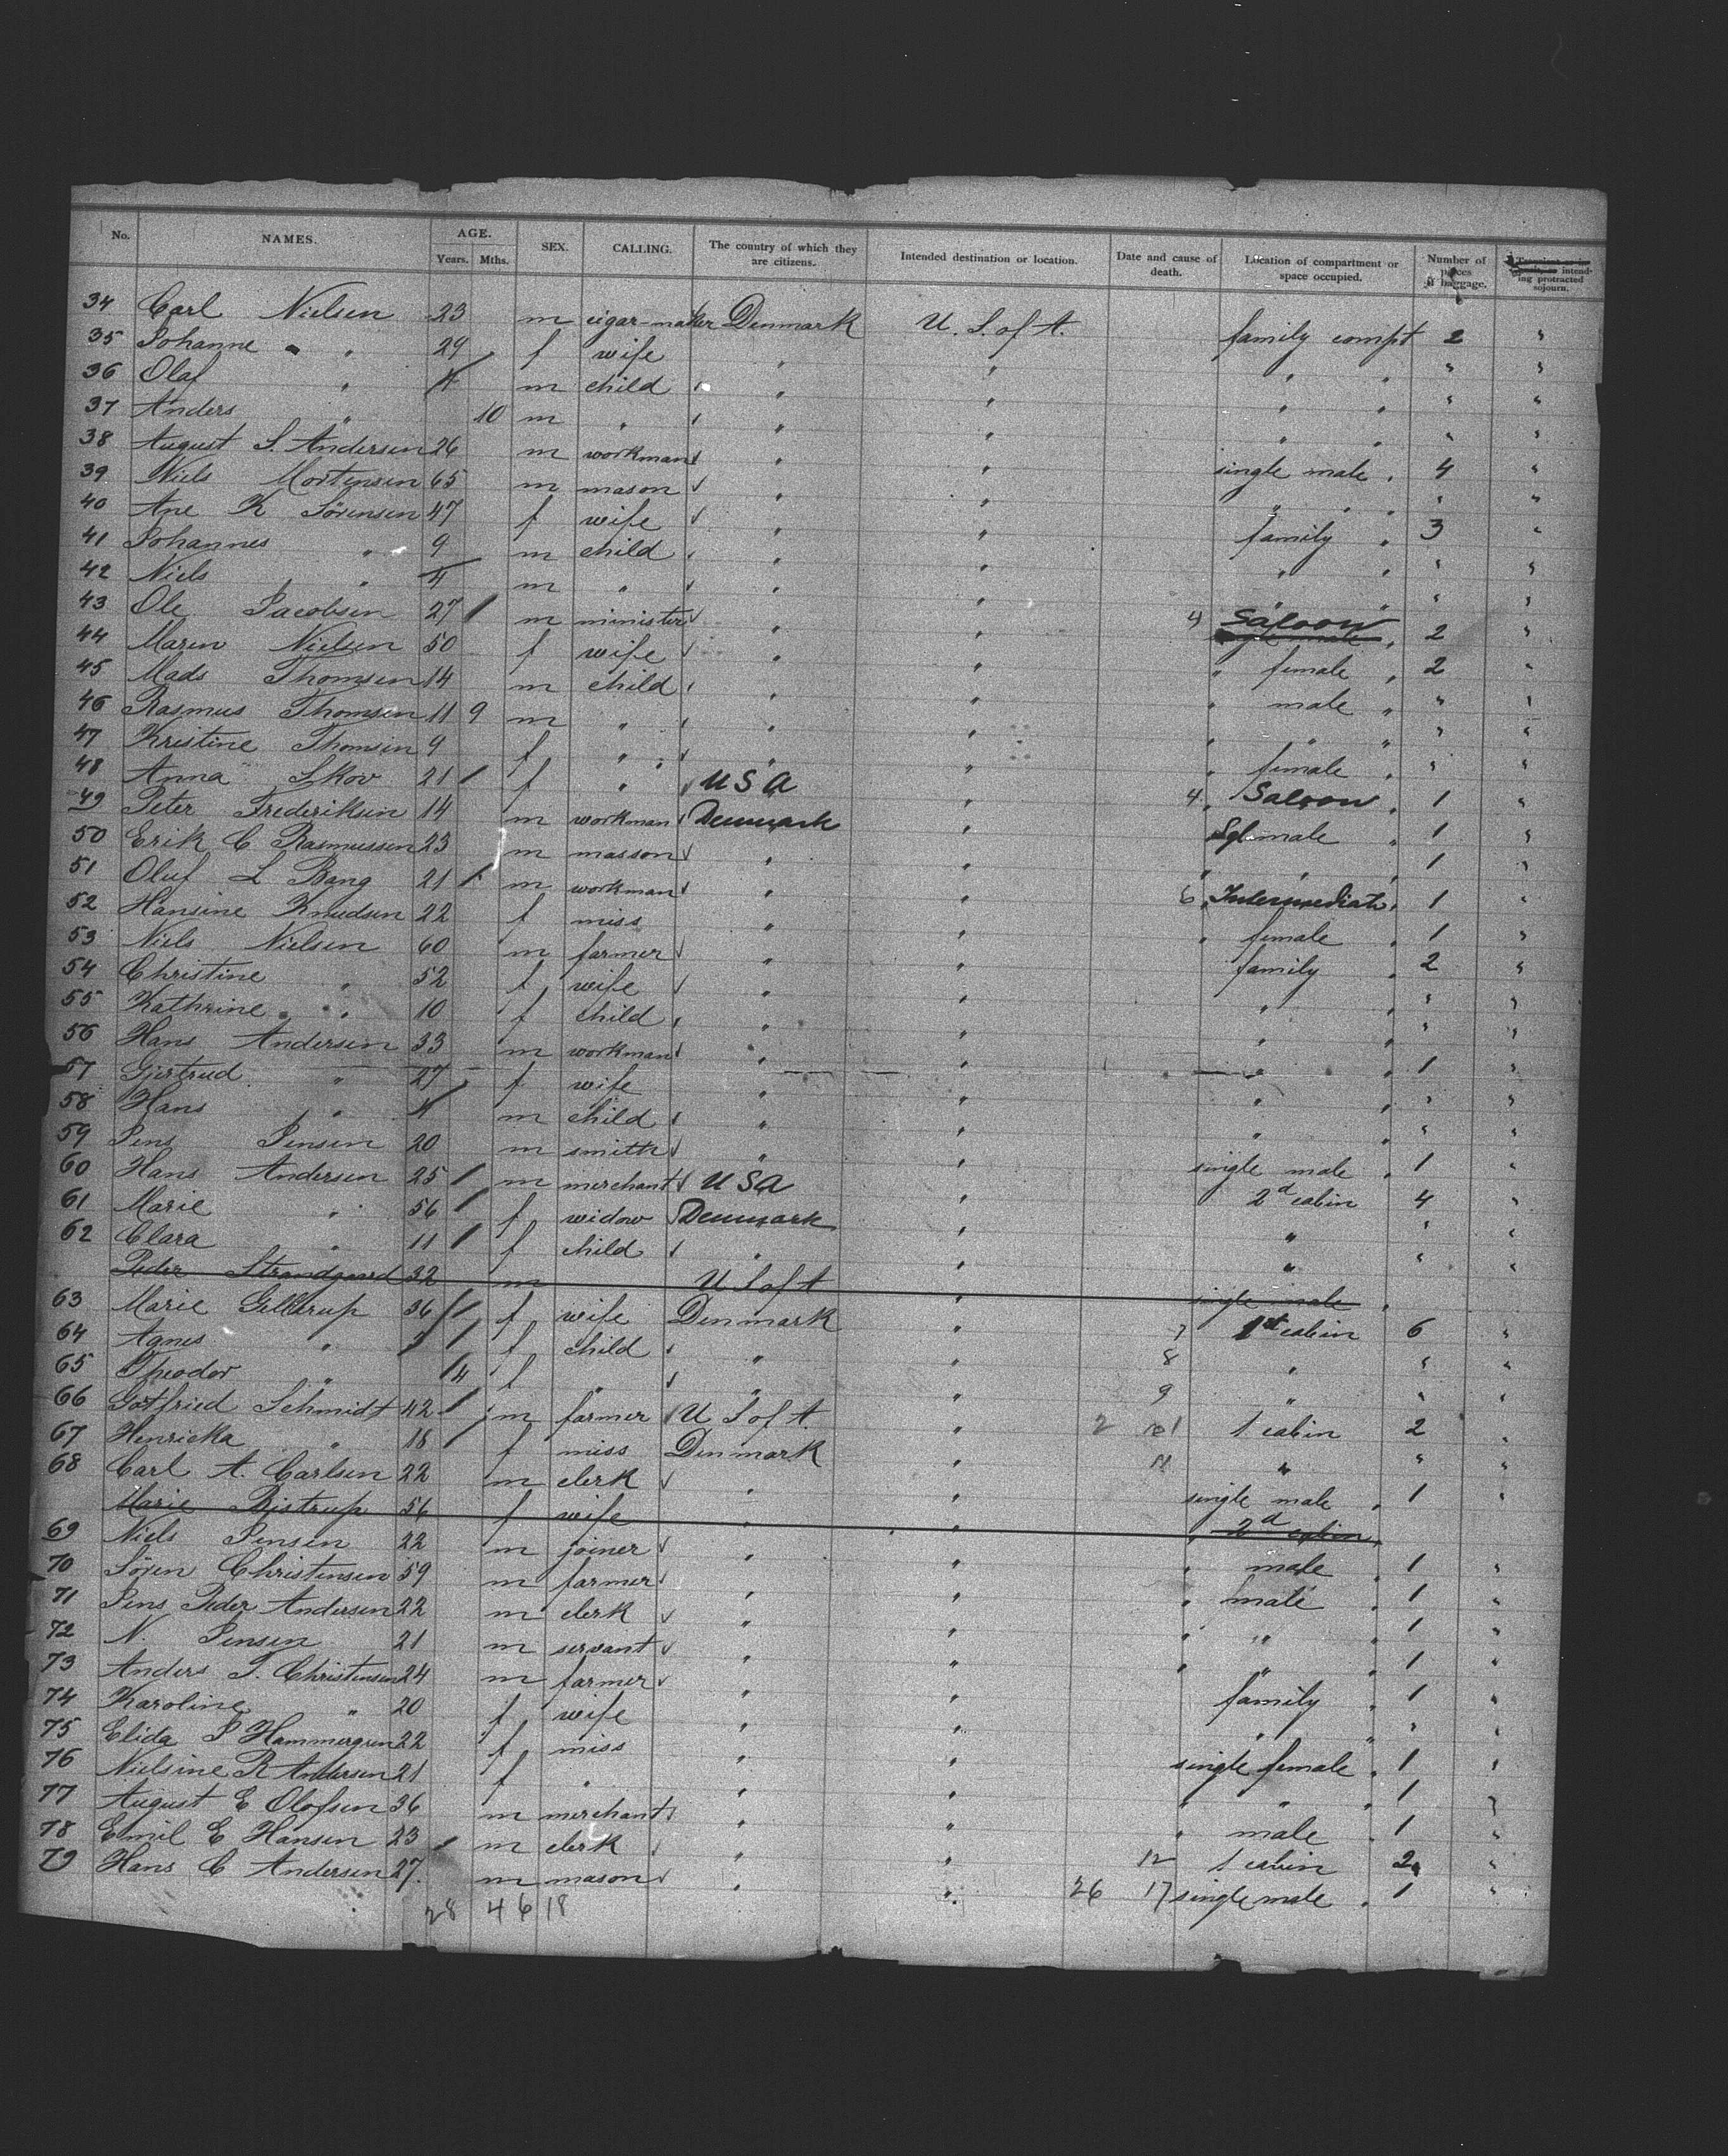 No. NAMES. AGE. Years. Mths. SEX. CALLING. The country of which they are citizens. Intended destination or location. Date and cause of death. Location of compartment or space occupied. Number of pieces of baggage. intending protracted sojourn.
34 Carl Nielsen 23 m cigar-maker Denmark U. S. of A. family compt 2 "
35 Johanne " 29 f wife " " " " " "
36 Olaf " 4 m child " " " " " "
37 Anders " 10 m " " " " " " "
38 August S. Andersen 26 m workman " " single male " 4 "
39 Niels Mortensen 65 m mason " " " " " " "
40 Ane K Sörensen 47 f wife " " family " 3 "
41 Johannes " 9 m child " " " " " "
42 Niels " 4 m " " " " " " "
43 Ole Jacobsen 27 m minister " " 4 Saloon single male " 2 "
44 Maren Nielsen 50 f wife " " " female " 2 "
45 Mads Thomsen 14 m child " " " male " " "
46 Rasmus Thomsen 11 9 m " " " " " " " "
47 Kristine Thomsen 9 f " " " " female " " "
48 Anna Skov 21 f " USA " 4 " Saloon " 1 "
49 Peter Frederiksen 14 m workman Denmark " Sgl male " 1 "
50 Erik C Rasmussen 23 m masson " " " " " 1 "
51 Oluf L Bang 21 m workman " " 6 " Intermediate " 1 "
52 Hansine Knudsen 22 f miss " " " female " 1 "
53 Niels Nielsen 60 m farmer " " family " 2 "
54 Christine " 52 f wife " " " " "
55 Kathrine " 10 f child " " " " " "
56 Hans Andersen 33 m workman " " " " 1 "
57 Gjertrud " 27 f wife " " " " " "
58 Hans " 4 m child " " " " " "
59 Jens Jensen 20 m smith " " single male " 1 "
60 Hans Andersen 25 m merchant USA " 2d cabin 4 "
61 Marie " 56 f widow Denmark " " " "
62 Clara " 11 f child " " " " "
Peder Strandgaard 32 m U S of A " single male "
63 Marie Gellerup 36 f wife Denmark " 7 1st cabin 6 "
64 Agnes " 7 f child " " 8 " " "
65 Theodor " 4 f " " " 9 " " "
66 Gotfried Schmidt 42 m farmer U S of A " 2 1 cabin 2 "
67 Henricka " 18 f miss Denmark " 11 " " "
68 Carl A. Carlsen 22 m clerk " " single male " 1 "
Marie Bistrup 56 f wife " " " 2d cabin "
69 Niels Jensen 22 m joiner " " " male " 1 "
70 Sören Christensen 59 m farmer " " " male " 1 "
71 Jens Peder Andersen 22 m clerk " " " " " 1 "
72 N. Jensen 21 m servant " " " " " 1 "
73 Anders T. Christensen 24 m farmer " " family " 1 "
74 Karoline " 20 f wife " " " " " "
75 Elida P Hammergren 22 f miss " " single female " 1 "
76 Nielsine R Andersen 21 f " " " " " " 1 "
77 August E Olofsen 36 m merchant " " " male " 1 "
78 Emil E Hansen 23 m clerk " " 12 1 cabin 2 "
79 Hans C Andersen 27 m mason " " 26 17 single male " 1 "
28 4 6 18